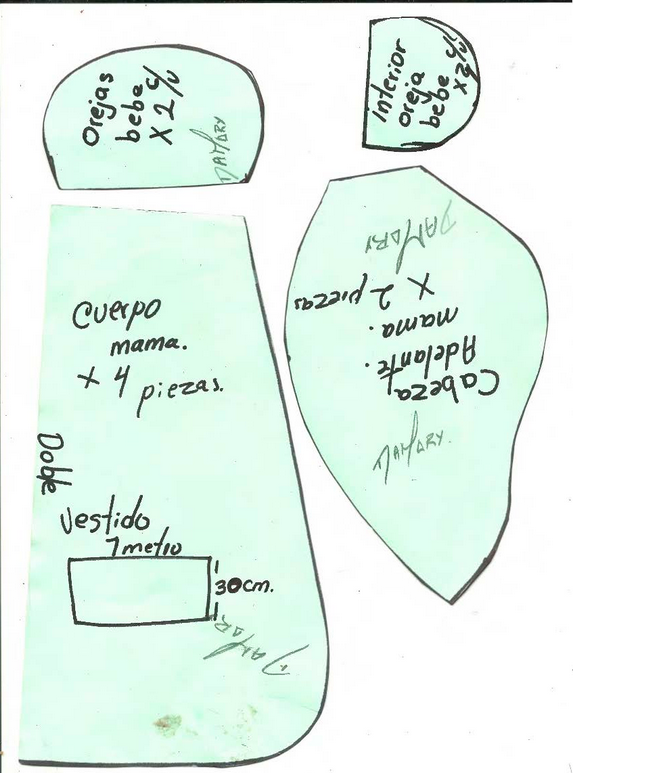 Orejas
bebe
x 2 c/u
DAMARY
Interior
oreja
bebe
x 2 c/u
Cuerpo
mama.
x 4 piezas.
Doble
Vestido
1 metro
30 cm.
DAMARY
Cabeza
Adelante.
mama.
x 2 piezas
DAMARY
DAMARY.